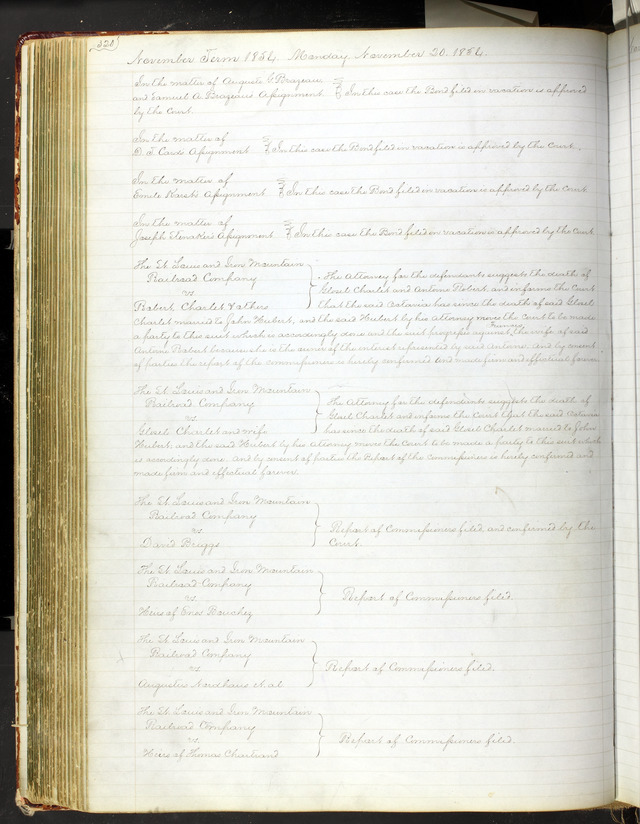 328
November Term 1856. Monday November 20. 1856.
In the matter of Auguste C Brazeau
and Samuel A. Brazeaus Assignment } In this case the Bond filed in vacation is approved
by the Court.
In the matter of
Assignment } In this case the Bond filed in vacation is approved by the Court.
In the matter of
Emile Karsts Assignment } In this case the Bond filed in vacation is approved by the Court
In the matter of
Joseph Assignment } In this case the Bond filed in vacation is approved by the Court
The St. Louis and Iron Mountain
Railroad Company
vs
Robert, Charlet & others
The Attorney for the defendants suggests the death of
Charlet and Antoine Robert, and informs the Court
that the said Octavia has since the death of said
Charlet married to John Hubert, and the said Hubert by his Attorney moves the Court to be made
a party to this suit which is accordingly done and the against the wife of said
Antoine Robert because she is the owner of the interest represented by said Antoine. And by consent
of parties the report of the commissioners is hereby confirmed and made firm and effectual forever.
The St. Louis and Iron Mountain
Railroad Company
vs
Charlet and wife
The Attorney for the defendants suggests the death of
Charlet and informs the Court that the said Octavia
has since the death of said Charlet married to John
Hubert, and the said Hubert by his Attorney moves the Court to be made a party to this suit which
is accordingly done. And by consent of parties the Report of the commissioners is hereby confirmed and
made firm and effectual forever.
The St. Louis and Iron Mountain
Railroad Company
vs.
David Briggs
Report of Commissioners filed and confirmed by the
Court.
The St. Louis and Iron Mountain
Railroad Company
vs.
Heirs of
Report of Commissioners filed.
The St. Louis and Iron Mountain
Railroad Company
vs
Augustus Nordhaus et. al.
Report of Commissioners filed.
The St. Louis and Iron Mountain
Railroad Company
vs.
Heirs of Thomas Chartrand
Report of Commissioners filed.